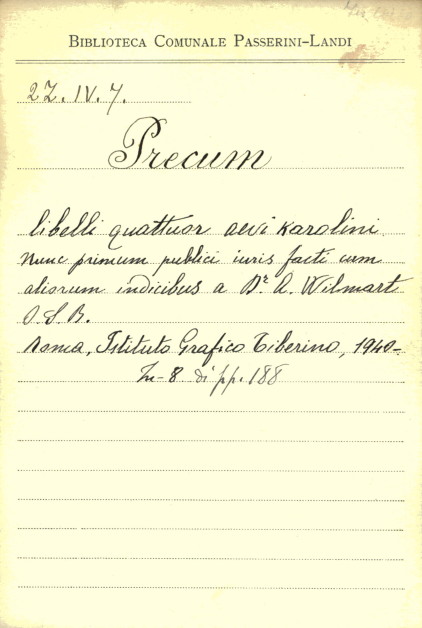 BIBLIOTECA COMUNALE PASSERINI-LANDI
2Z. IV. 7.
Precum
libelli quattuor aevi Karolini
nunc primum publici iuris facti cum
aliorum indicibus a Dr. A. Wilmart
O.S.B.
Roma, Istituto Grafico Tiberino, 1940-
In-8 di pp. 188